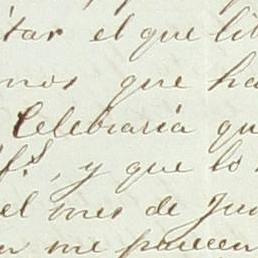 itar el que lib
mos que ha
Celebraría qu
fs., y que lo
el mes de Jun
n me parecen